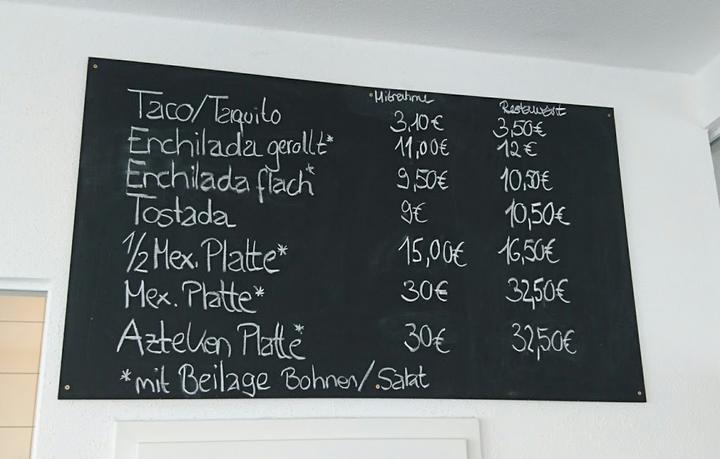 Mitnahme Restaurant
Taco/Taquito 3,10€ 3,50€
Enchilada gerollt* 11,00€ 12€
Enchilada flach* 9,50€ 10,50€
Tostada 9€ 10,50€
1/2 Mex. Platte* 15,00€ 16,50€
Mex. Platte* 30€ 32,50€
Azteken Platte* 30€ 32,50€
*mit Beilage Bohnen/Salat